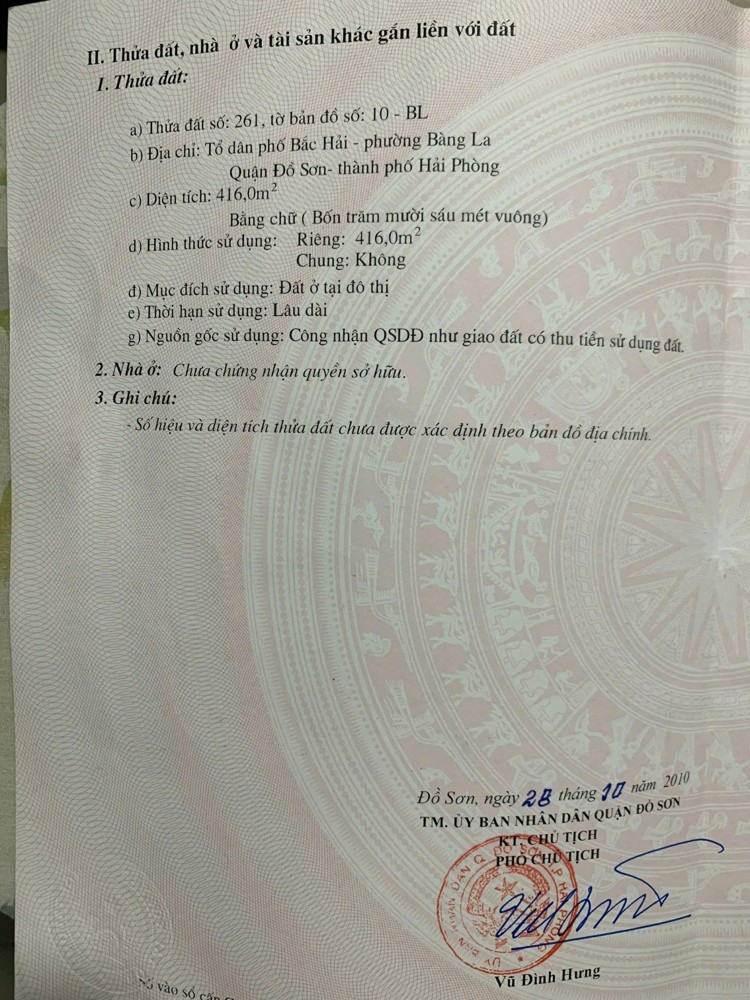 II. Thửa đất, nhà ở và tài sản khác gắn liền với đất
1. Thửa đất:
a) Thửa đất số: 261, tờ bản đồ số: 10 - BL
b) Địa chỉ: Tổ dân phố Bắc Hải - phường Bàng La
Quận Đồ Sơn- thành phố Hải Phòng
c) Diện tích: 416,0m²
Bằng chữ ( Bốn trăm mười sáu mét vuông)
d) Hình thức sử dụng: Riêng: 416,0m²
Chung: Không
đ) Mục đích sử dụng: Đất ở tại đô thị
e) Thời hạn sử dụng: Lâu dài
g) Nguồn gốc sử dụng: Công nhận QSDĐ như giao đất có thu tiền sử dụng đất.
2. Nhà ở: Chưa chứng nhận quyền sở hữu.
3. Ghi chú:
- Số hiệu và diện tích thửa đất chưa được xác định theo bản đồ địa chính.
Đồ Sơn, ngày 28 tháng 10 năm 2010
TM. ỦY BAN NHÂN DÂN QUẬN ĐỒ SƠN
KT. CHỦ TỊCH
PHÓ CHỦ TỊCH
ỦY BAN NHÂN DÂN Q. ĐỒ SƠN T.P HẢI PHÒNG
Vũ Đình Hưng
Số vào sổ cấp